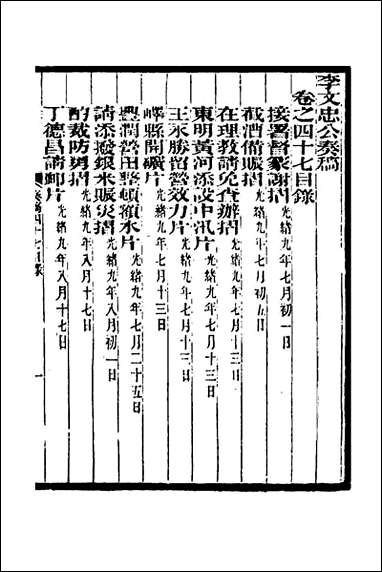 李文忠公奏稿
卷之四十七目錄
接署督篆謝摺光緒九年七月初一日
截漕備賑摺光緒九年七月初五日
在理教請免查辦摺光緒九年七月十三日
東明黃河添設中汛片光緒九年七月十三日
王永勝留營效力片光緒九年七月十三日
嶧縣開礦片光緒九年七月十三日
豐潤營田整頓領水片光緒九年七月二十五日
請添撥銀米賑災摺光緒九年八月初一日
酌裁防勇摺光緒九年八月十七日
丁德昌請卹片光緒九年八月十七日
奏稿四十七目錄
一